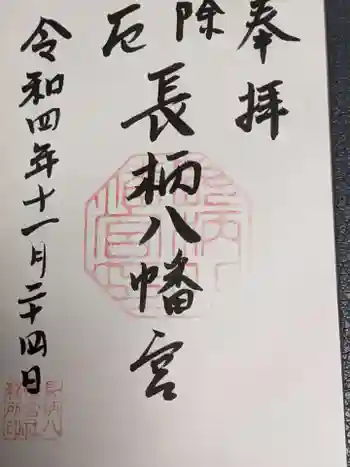 奉拝
除厄
長柄八幡宮
令和四年十一月二十四日